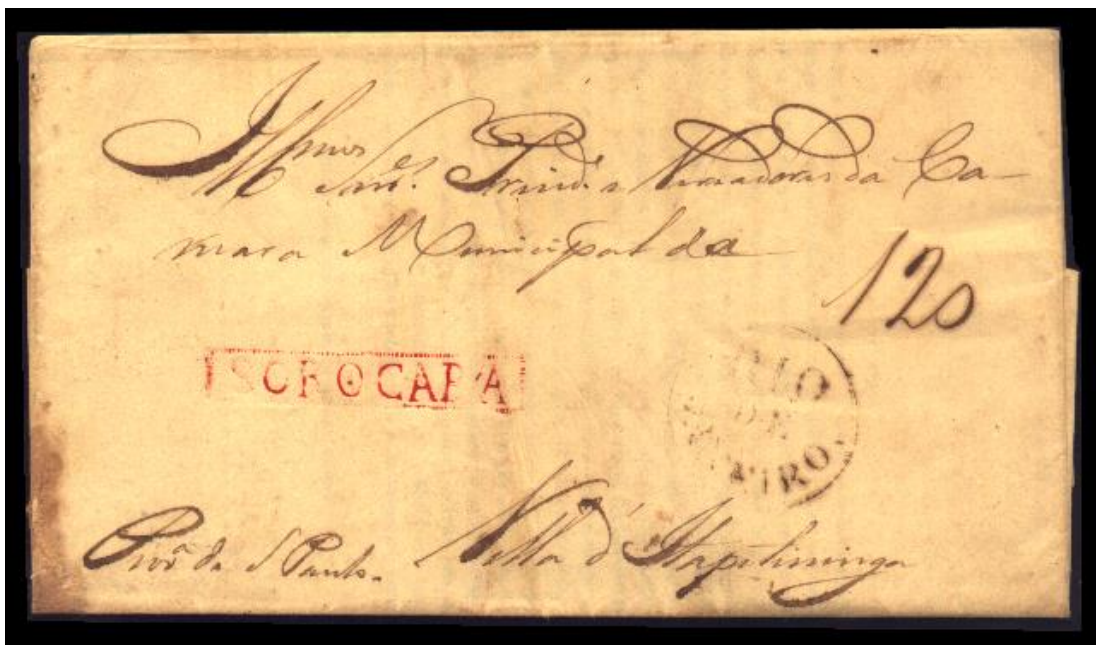 Illmos Snres. Presid.e e Vereadores da Ca-
mara Municipal da
120
SOROCABA
RIO
DE
JANEIRO.
Provª de S Paulo. Villa d'Itapitininga